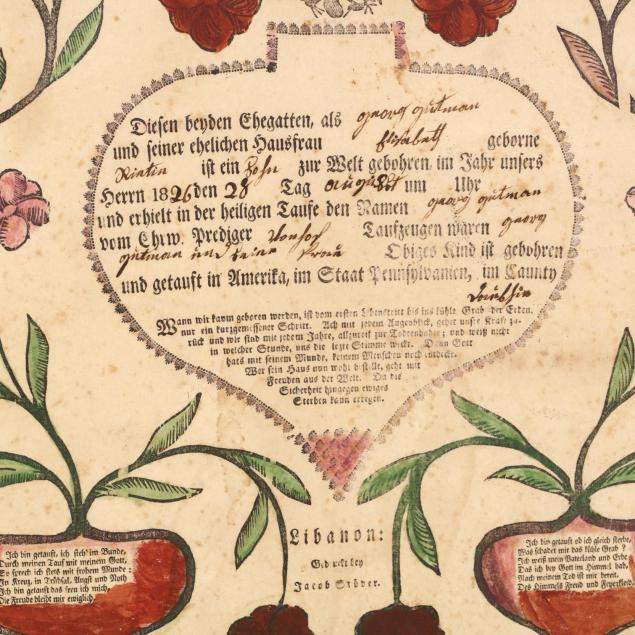 Diesen beyden Ehegatten, als georg gutman
und seiner ehelichen Hausfrau Elisabeth geborne
Rietin ist ein Sohn zur Welt gebohren, im Jahr unsers
Herrn 1826 den 28 Tag august um Uhr
und erhielt in der heiligen Taufe den Namen georg gutman
vom Ehrw. Prediger Taufzeugen waren georg
gutman und seine frau Obiges Kind ist gebohren
und getauft in Amerika, im Staat Pennsylvanien, im Caunty
Dauphin
Wann wir kaum geboren werden, ist vom ersten Lebenstritt bis ins kühle Grab der Erden.
nur ein kurzgemessener Schritt. Ach mit jedem Augenblick, gehet unsre Kraft zu-
rück und wir sind mit jedem Jahre, allzureif zur Todtenbahre; und weiß nicht
in welcher Stunde, uns die lezte Stimme weckt. Denn Gott
hats mit seinem Munde, keinem Menschen noch entdeckt.
Wer sein Haus nun wohl bestellt, geht mit
Freuden aus der Welt. Da die
Sicherheit hingegen ewiges
Sterben kann erregen.
Ich bin getauft, ich steh' im Bunde,
Durch meinen Tauf mit meinem Gott,
So sprech ich stets mit frohem Munde;
In Kreuz, in Trübsal, Angst und Noth
Ich bin getauft das freu ich mich,
Die Freude bleibt mir ewiglich.
Libanon:
Gedruckt bey
Jacob Stöver.
Ich bin getauft ob ich gleich sterbe,
Was schadet mir das kühle Grab ?
Ich weiß mein Vaterland und Erbe
Das ich bey Gott im Himmel hab,
Nach meinem Tod ist mir bereit,
Des Himmels Freud und Feyerkleid.